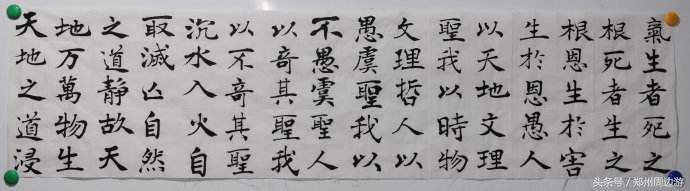 氣生者死之
根死者生之
根恩生於害
生於恩愚人
以天地文理
聖我以時物
文理哲人以
愚虞聖我以
不愚虞聖人
以奇其聖我
以不奇其聖
沉水入火自
取滅亡自然
之道靜故天
地万萬物生
天地之道浸
头条号 / 郑州周边游